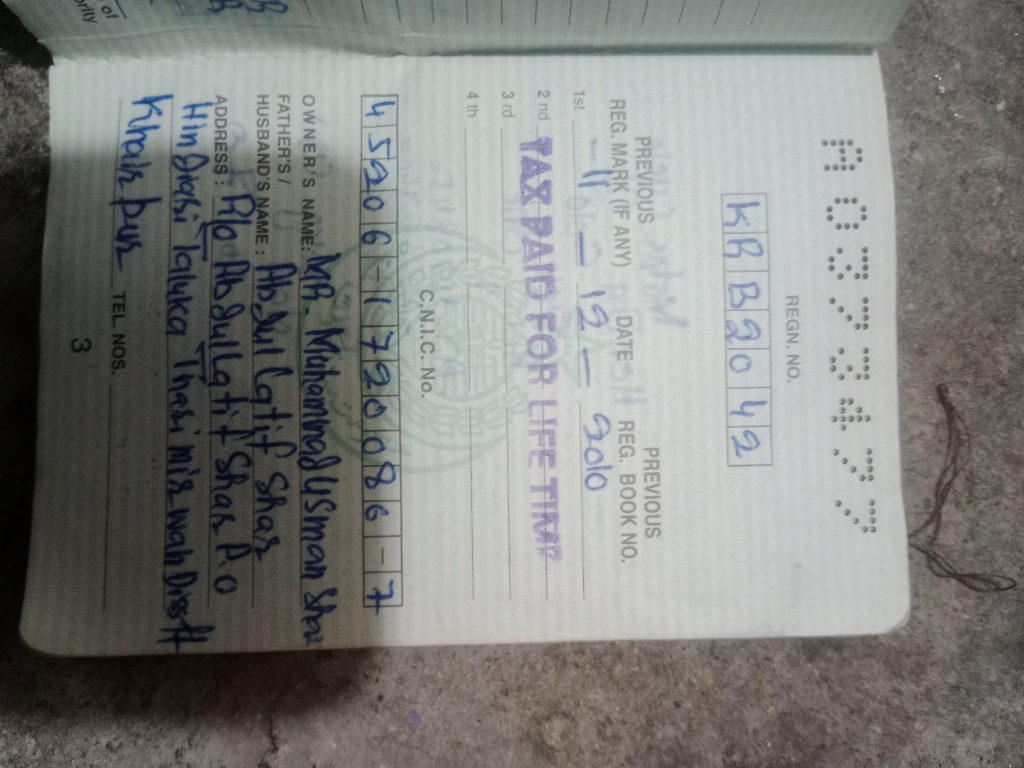 A 0373477
REGN. NO.
KRB2042
PREVIOUS PREVIOUS
REG. MARK (IF ANY) DATE REG. BOOK NO.
1st 11 - 12 - 2010
2 nd TAX PAID FOR LIFE TIME
3 rd
4 th
C.N.I.C. No.
45206-1720086-7
OWNER'S NAME: MR. Muhammad Usman Shar
FATHER'S /
HUSBAND'S NAME: Abdul Latif Shar
ADDRESS: R/o Abdul Latif Shar P.O
Hindiari Taluka Thari mir wah Distt
Khair pur TEL. NOS.
3
of
ority